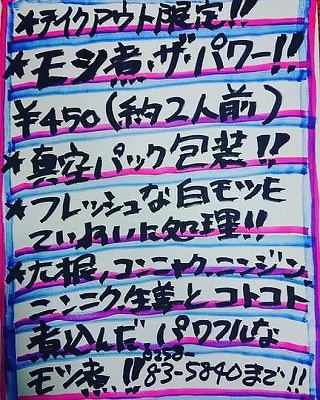 ★テイクアウト限定!!
★モツ煮・ザ・パワー!!
¥450(約2人前)
★真空パック包装!!
★フレッシュな白モツを
ていねいに処理!!
★大根、コンニャク、ニンジン、
ニンニク生姜とコトコト
煮込んだパワフルな
モツ煮!!
0258-
83-5840まで!!